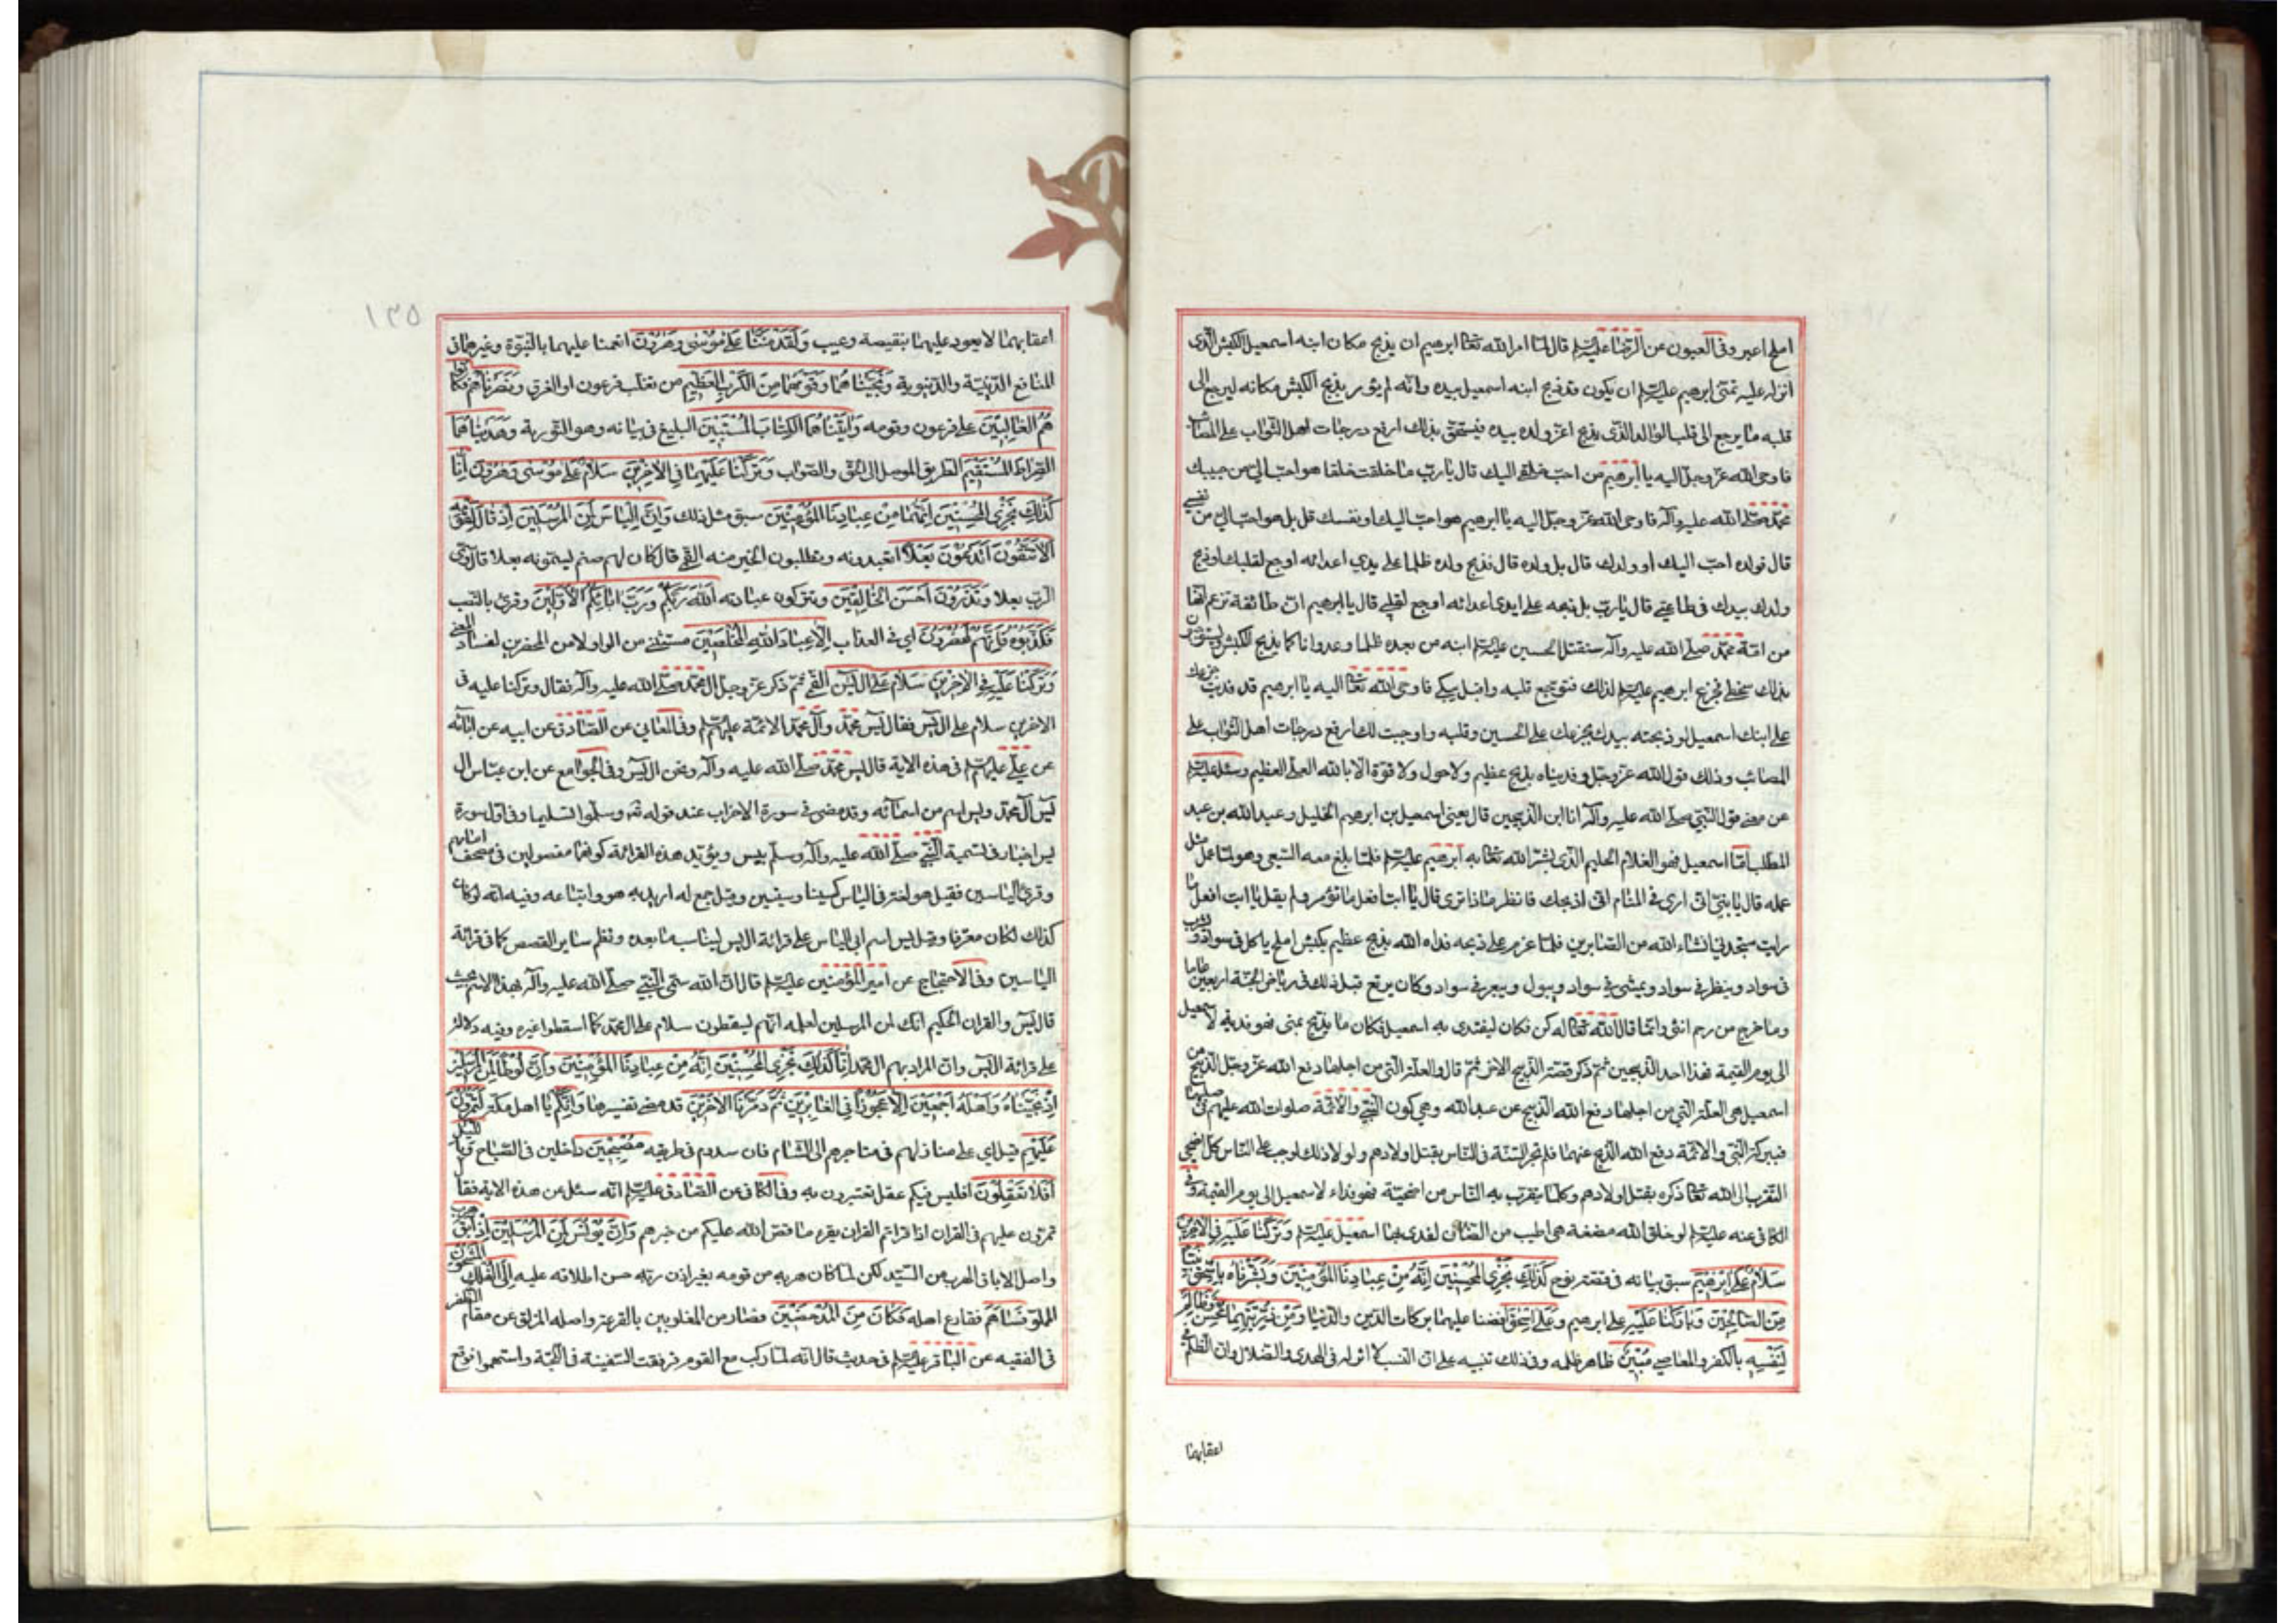 املح اعبر وفی العیون عن الرضا علیه السلم قال لما امر الله تعا ابرهیم ان یذبح مکان ابنه اسمعیل الکبش الذی
انزله علیه تمنی ابرهیم علیه السلم ان یکون قد ذبح ابنه اسمعیل بیده وانه لم یؤمر بذبح الکبش مکانه لیرجع الی
قلبه ما یرجع الی قلب الوالد الذی یذبح اعز ولده بیده فیستحق بذلک ارفع درجات اهل الثواب علی المصائب
فاوحی الله عز وجل الیه یا ابرهیم من احب خلقی الیک قال یا رب ما خلقت خلقا هو احب الی من حبیبک
محمد صلی الله علیه وآله فاوحی الله عز وجل الیه یا ابرهیم هو احب الیک او نفسک قال بل هو احب الی من نفسی
قال فولده احب الیک او ولدک قال بل ولده قال فذبح ولده ظلما علی یدی اعدائه اوجع لقلبک او ذبح
ولدک بیدک فی طاعتی قال یا رب بل ذبحه علی ایدی اعدائه اوجع لقلبی قال یا ابرهیم ان طائفة تزعم انها
من امة محمد صلی الله علیه وآله ستقتل الحسین علیه السلم ابنه من بعده ظلما وعدوانا کما یذبح الکبش ویستوجبون
بذلک سخطی فجزع ابرهیم علیه السلم لذلک فتوجع قلبه واقبل یبکی فاوحی الله تعا الیه یا ابرهیم قد فدیت جزعک
علی ابنک اسمعیل لو ذبحته بیدک بجزعک علی الحسین وقتله واوجبت لک ارفع درجات اهل الثواب علی
المصائب وذلک قول الله عز وجل وفدیناه بذبح عظیم ولا حول ولا قوة الا بالله العلی العظیم وسئل علیه السلم
عن معنی قول النبی صلی الله علیه وآله انا ابن الذبیحین قال یعنی اسمعیل بن ابرهیم الخلیل وعبد الله بن عبد
المطلب اما اسمعیل فهو الغلام الحلیم الذی بشر الله تعا به ابرهیم علیه السلم فلما بلغ معه السعی وهو لما عمل مثل
عمله قال یا بنی انی اری فی المنام انی اذبحک فانظر ماذا تری قال یا ابت افعل ما تؤمر ولم یقل یا ابت افعل ما
رایت ستجدنی انشاء الله من الصابرین فلما عزم علی ذبحه فداه الله بذبح عظیم بکبش املح یاکل فی سواد ویشرب
فی سواد وینظر فی سواد ویمشی فی سواد ویبول ویبعر فی سواد وکان یرتع قبل ذلک فی ریاض الجنة اربعین عاما
وما خرج من رحم انثی وانما قال الله تعا له کن فکان لیفتدی به اسمعیل فکان ما یذبح بمنی فهو فدیة لاسمعیل
الی یوم القیمة فهذا احد الذبیحین ثم ذکر قصة الذبیح الاخر ثم قال والعلة التی من اجلها دفع الله عز وجل الذبح عن
اسمعیل هی العلة التی من اجلها دفع الله الذبح عن عبد الله وهی کون النبی والائمة صلوات الله علیهم فی صلبهما
فببرکة النبی والائمة دفع الله الذبح عنهما فلم تجر السنة فی الناس بقتل اولادهم ولولا ذلک لوجب علی الناس کل اضحی
التقرب الی الله تعا ذکره بقتل اولادهم وکلما یتقرب به الناس من اضحیة فهو فداء لاسمعیل الی یوم القیمة وفی
الکافی عنه علیه السلم لو خلق الله مضغة هی اطیب من الضان لفدی بها اسمعیل علیه السلم وَتَرَکْنا عَلَیْهِ فِی الْاخِرینَ
سَلامٌ عَلی اِبْرهیمَ سبق بیانه فی قصة نوح کَذلِکَ نَجْزِی الْمُحْسِنینَ اِنَّهُ مِنْ عِبادِنَا الْمُؤْمِنینَ وَبَشَّرْناهُ بِاِسْحقَ نَبِیّا
مِنَ الصّالِحینَ وَبارَکْنا عَلَیْهِ علی ابرهیم وَعَلی اِسْحقَ افضنا علیهما برکات الدین والدنیا وَمِنْ ذُرِّیَّتِهِما مُحْسِنٌ وَظالِمٌ
لِنَفْسِهِ بالکفر والمعاصی مُبینٌ ظاهر ظلمه وفی ذلک تنبیه علی ان النسب لا اثر له فی الهدی والضلال وان الظلم فی
اعقابهما
١٣٥
اعقابهما لا یعود علیهما بنقیصة وعیب وَلَقَدْ مَنَنّا عَلی مُوسی وَهرُونَ انعمنا علیهما بالنبوة وغیرها من
المنافع الدینیة والدنیویة وَنَجَّیْناهُما وَقَوْمَهُما مِنَ الْکَرْبِ الْعَظیمِ من تغلب فرعون او الغرق وَنَصَرْناهُمْ فَکانُوا
هُمُ الْغالِبینَ علی فرعون وقومه وَاتَیْناهُمَا الْکِتابَ الْمُسْتَبینَ البلیغ فی بیانه وهو التوریة وَهَدَیْناهُمَا
الصِّراطَ الْمُسْتَقیمَ الطریق الموصل الی الحق والصواب وَتَرَکْنا عَلَیْهِما فِی الْاخِرینَ سَلامٌ عَلی مُوسی وَهرُونَ اِنّا
کَذلِکَ نَجْزِی الْمُحْسِنینَ اِنَّهُما مِنْ عِبادِنَا الْمُؤْمِنینَ سبق مثل ذلک وَاِنَّ اِلْیاسَ لَمِنَ الْمُرْسَلینَ اِذْ قالَ لِقَوْمِهِ
اَلا تَتَّقُونَ اَتَدْعُونَ بَعْلاً اتعبدونه وتطلبون الخیر منه القمی قال کان لهم صنم لیسمونه بعلا قال وسمی
الرب بعلا وَتَذَرُونَ اَحْسَنَ الْخالِقینَ وتترکون عبادته اَللهُ رَبُّکُمْ وَرَبُّ ابائِکُمُ الْاَوَّلینَ وقرئ بالنصب
فَکَذَّبُوهُ فَاِنَّهُمْ لَمُحْضَرُونَ ای فی العذاب اِلّا عِبادَ اللهِ الْمُخْلَصینَ مستثنی من الواو لا من المحضرین لفساد المعنی
وَتَرَکْنا عَلَیْهِ فِی الْاخِرینَ سَلامٌ عَلی الیسَ القمی ثم ذکر عز وجل ال محمد صلی الله علیه وآله فقال وترکنا علیه فی
الاخرین سلام علی ال یس فقال یس محمد وآل محمد الائمة علیهم السلم وفی المعانی عن الصادق عن ابیه عن ابائه
عن علی علیهم السلم فی هذه الایة قال یس محمد صلی الله علیه وآله ونحن ال یس وفی الجوامع عن ابن عباس ال
یس آل محمد ویس اسم من اسمائه وقد مضی فی سورة الاحزاب عند قوله تعا وسلموا تسلیما وفی اول سورة
یس اخبار فی تسمیة النبی صلی الله علیه وآله وسلم بیس ویؤید هذه القرائة کونهما مفصولین فی مصحف امامهم
وقرئ الیاسین فقیل هو لغة فی الیاس کسینا وسینین وقیل جمع له ارید به هو واتباعه وفیه انه لو کان
کذلک لکان معرفا وقیل یس اسم ابی الیاس علی قرائة ال یس لیناسب ما بعده ونظم سایر القصص کما فی قرائة
الیاسین وفی الاحتجاج عن امیر المؤمنین علیه السلم قال ان الله سمی النبی صلی الله علیه وآله بهذا الاسم حیث
قال یس والقران الحکیم انک لمن المرسلین لعلمه انهم لیسقطون سلام علی ال محمد کما اسقطوا غیره وفیه دلالة
علی قرائة ال یس وان المراد بهم ال محمد اِنّا کَذلِکَ نَجْزِی الْمُحْسِنینَ اِنَّهُ مِنْ عِبادِنَا الْمُؤْمِنینَ وَاِنَّ لُوطاً لَمِنَ الْمُرْسَلینَ
اِذْ نَجَّیْناهُ وَاَهْلَهُ اَجْمَعینَ اِلّا عَجُوزاً فِی الْغابِرینَ ثُمَّ دَمَّرْنَا الْاخَرینَ قد مضی تفسیرها وَاِنَّکُمْ یا اهل مکة لَتَمُرُّونَ
عَلَیْهِمْ قیل ای علی منازلهم فی متاجرهم الی الشام فان سدوم فی طریقه مُصْبِحینَ داخلین فی الصباح وَبِاللَّیْلِ
اَفَلا تَعْقِلُونَ افلیس فیکم عقل تعتبرون به وفی الکافی عن الصادق علیه السلم انه سئل عن هذه الایة فقال
تمرون علیهم فی القران اذا قراتم القران یقرء ما قص الله علیکم من خبرهم وَاِنَّ یُونُسَ لَمِنَ الْمُرْسَلینَ اِذْ اَبَقَ هرب
واصل الاباق الهرب من السید لکن لما کان هربه من قومه بغیر اذن ربه حسن اطلاقه علیه اِلَی الْفُلْکِ الْمَشْحُونِ
المملو فَساهَمَ فقارع اهله فَکانَ مِنَ الْمُدْحَضینَ فصار من المغلوبین بالقرعة واصله المزلق عن مقام الظفر
فی الفقیه عن الباقر علیه السلم فی حدیث قال انه لما رکب مع القوم فوقفت السفینة فی اللجة واستهموا فوقع